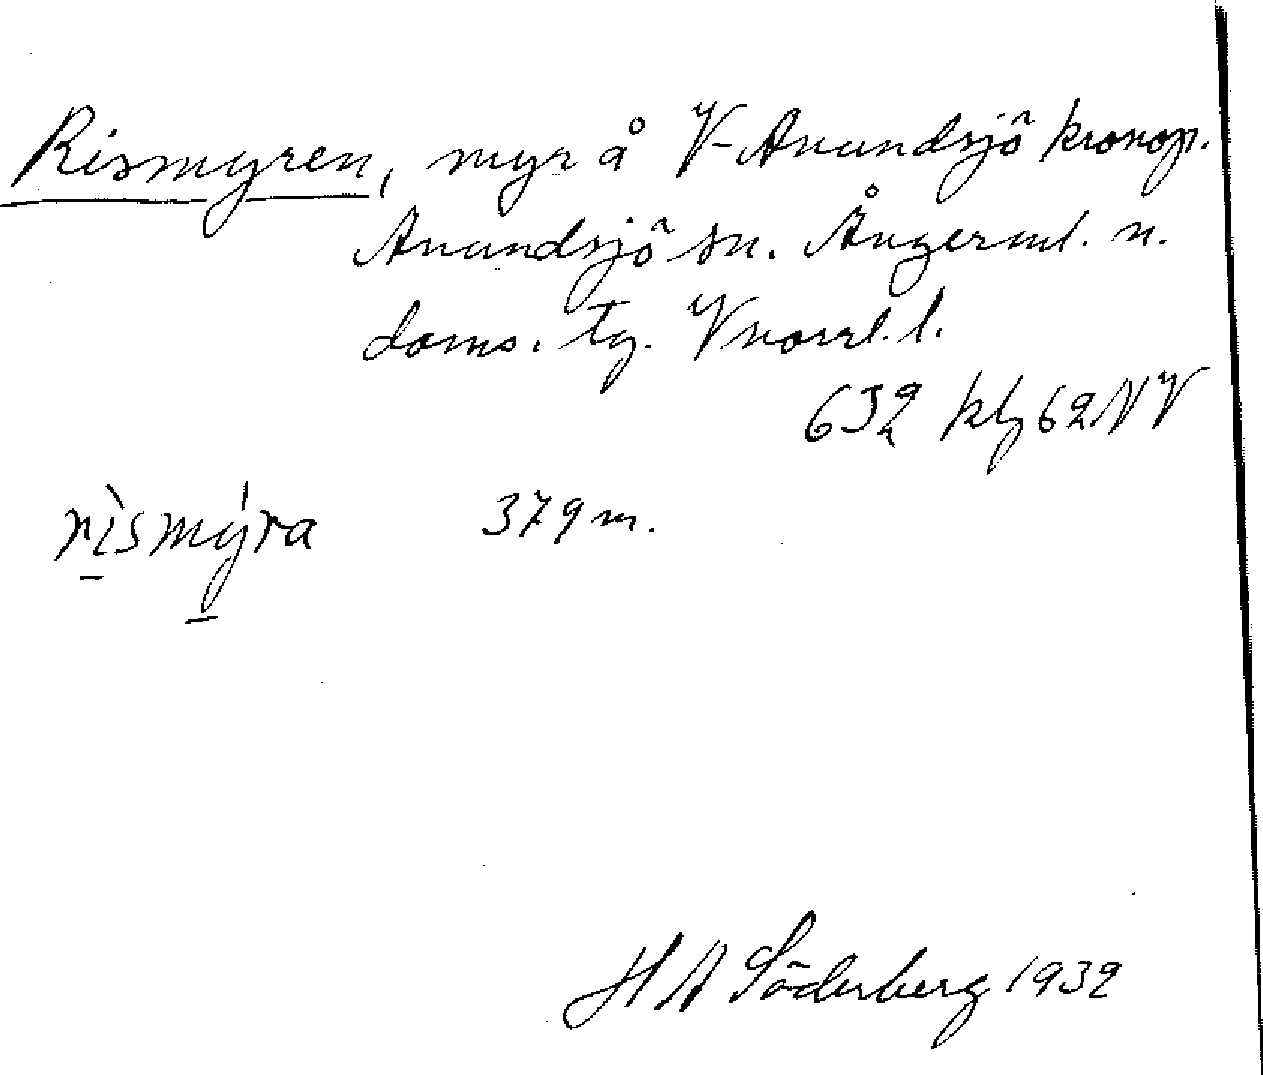 Rismyren, myr å V-Anundsjö kronop.
Anundsjö sn. Ångerml. n.
doms. tg. Vnorrl. l.
632 klg 62NV
rìsmýra 379 m.
H A Söderberg 1932